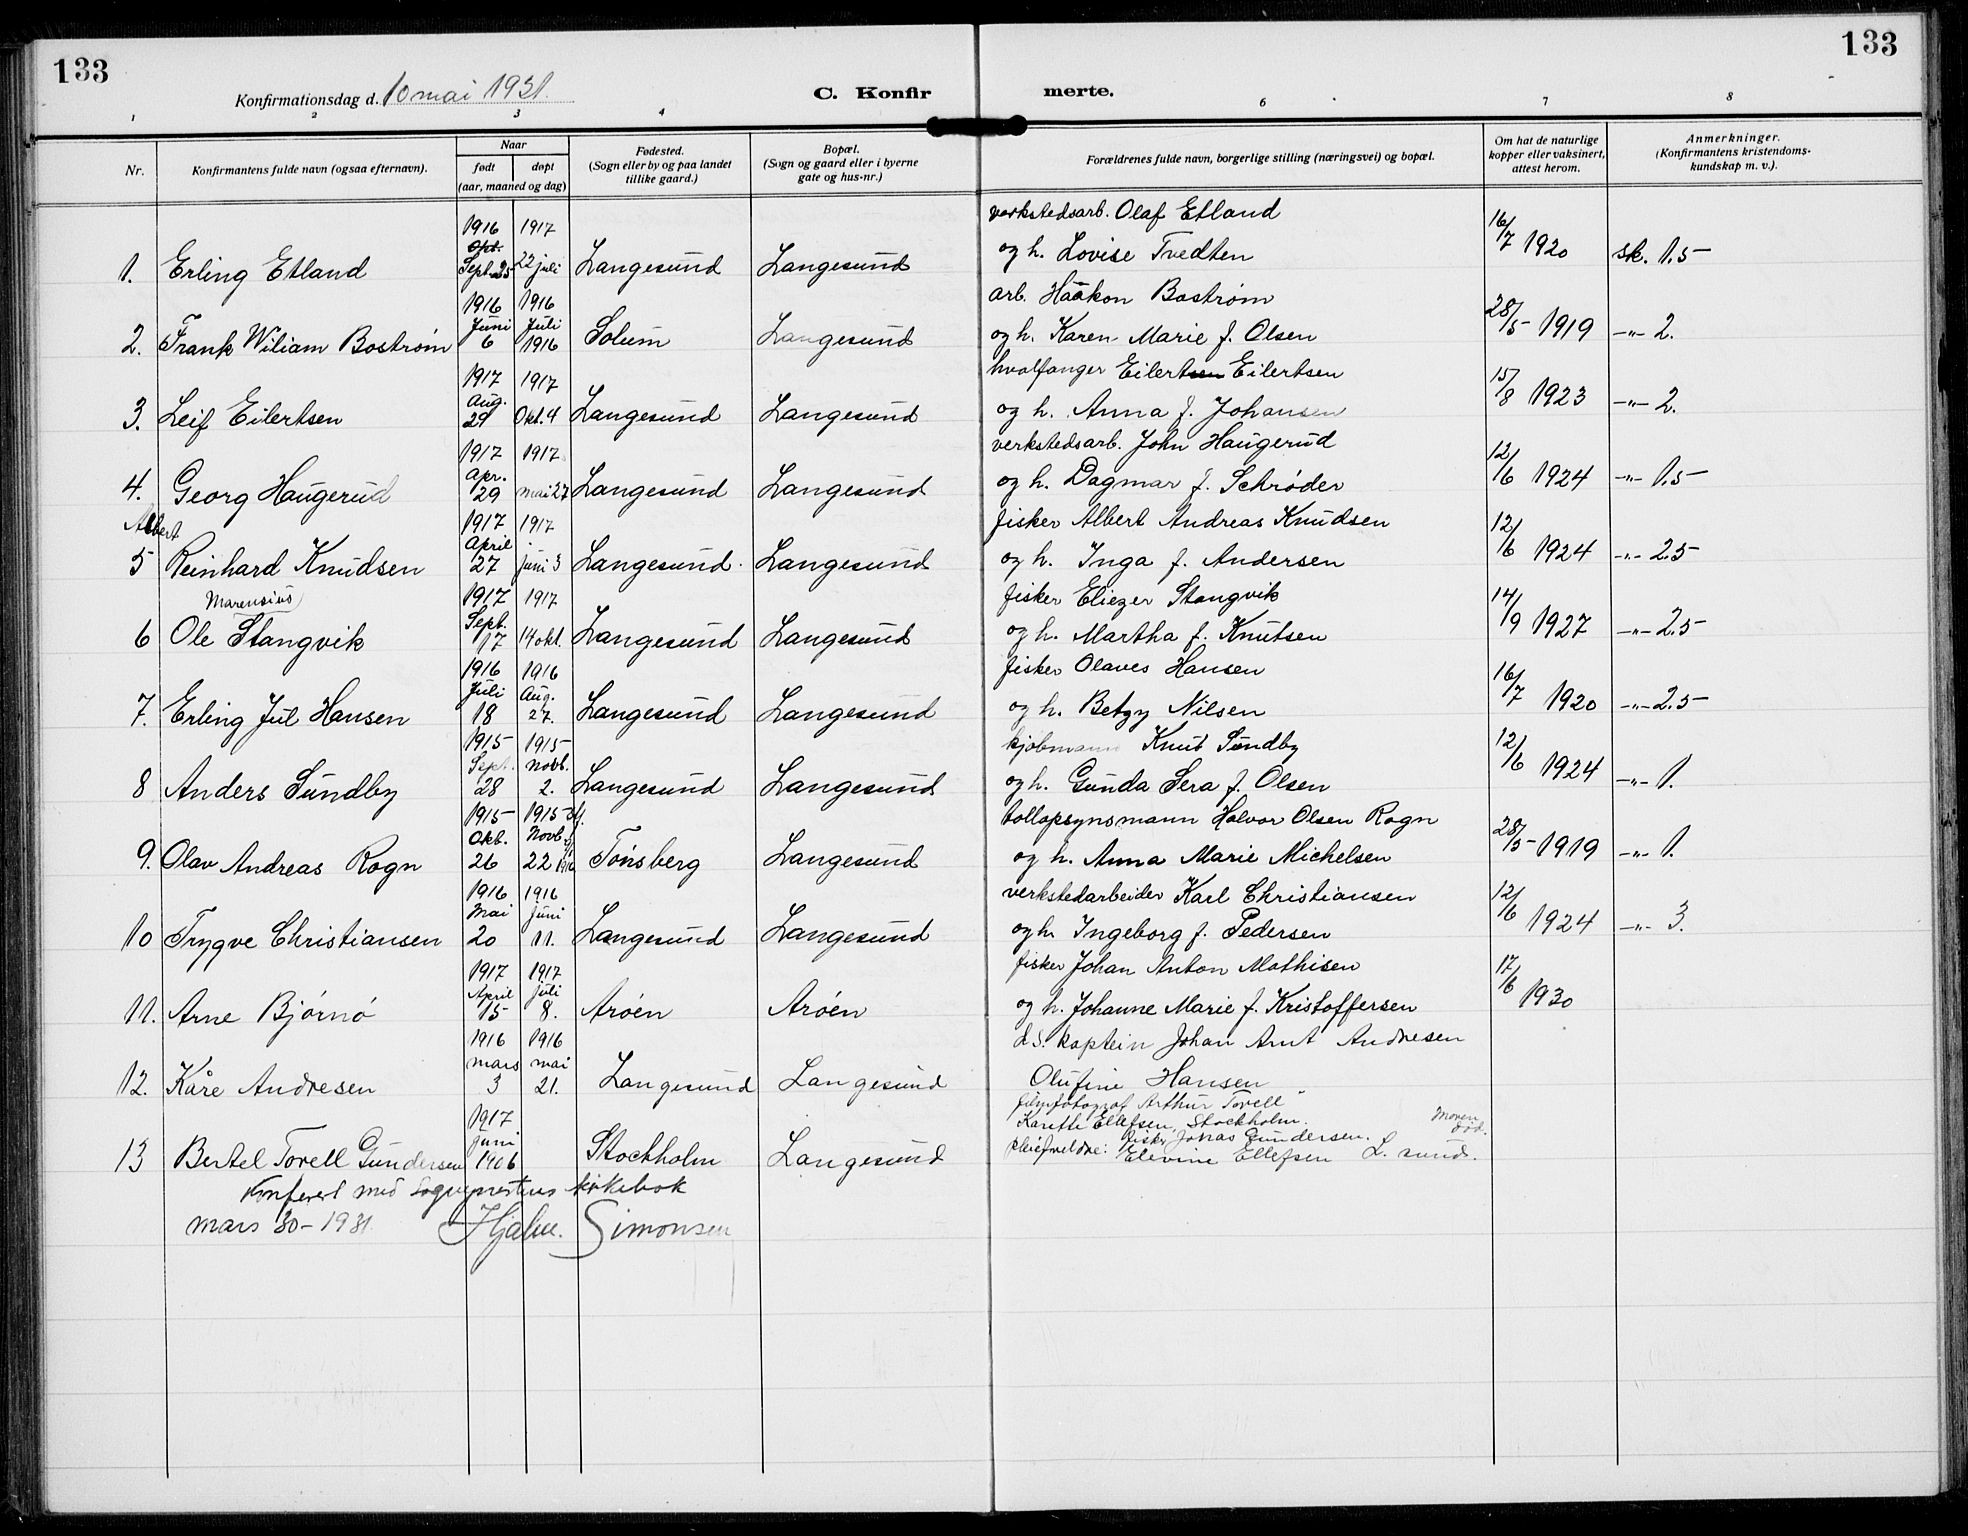 133
133
Konfirmationsdag d. 10 mai 1931.
C. Konfir merte.
1 2 3 4 6 7 8
Nr.
Konfirmantens fulde navn (ogsaa efternavn).
Naar
født døpt
(aar, maaned og dag)
Fødested.
(Sogn eller by og paa landet
tillike gaard.)
Bopæl.
(Sogn og gaard eller i byerne
gate og hus-nr.)
Forældrenes fulde navn, borgerlige stilling (næringsvei) og bopæl.
Om hat de naturlige
kopper eller vaksinert,
attest herom.
Anmerkninger.
(Konfirmantens kristendoms-
kundskap m. v.).
1916 1917 verkstedsarb. Olaf Etland
1. Erling Etland Sept. 25 22 juli Langesund Langesund og h. Lovise Tvedten 16/7 1920 sk. 1.5
1916 1916 arb. Haakon Bostrøm
Juni Juli
2. Frank Wiliam Bostrøm 6 1916 Solum Langesund og h. Karen Marie f. Olsen 28/5 1919 -"- 2.
1917 1917 hvalfanger Eilertsen Eilertsen
Aug.
3. Leif Eilertsen 29 Okt. 4 Langesund Langesund og h. Anna f. Johansen 15/8 1923 -"- 2.
1917 1917 verkstedsarb. John Haugerud
Apr.
4. Georg Haugerud 29 mai 27 Langesund Langesund og h. Dagmar f. Schrøder 12/6 1924 -"- 1.5
Albert 1917 1917 fisker Albert Andreas Knudsen
April
5 Reinhard Knudsen 27 juni 3 Langesund Langesund og h. Inga f. Andersen 12/6 1924 -"- 2.5
Marensius 1917 1917 fisker Eliezer Stangvik
Sept.
6 Ole Stangvik 17 14 okt. Langesund Langesund og h. Martha f. Knutsen 14/9 1927 -"- 2.5
1916 1916 fisker Olaves Hansen
Juli Aug.
7. Erling Jul Hansen 18 27. Langesund Langesund og h. Betzy Nilsen 16/7 1920 -"- 2.5
1915 1915 kjøbmann Knut Sundby
Sept. Novb.
8 Anders Sundby 28 2. Langesund Langesund og h. Gunda Sera f. Olsen 12/6 1924 -"- 1.
1915 1915 tollopsynsmann Halvor Olsen Rogn
Okb. Novb
9. Olav Andreas Rogn 26 22 Tønsberg Langesund og h. Anna Marie Michelsen 28/5 1919 -"- 1.
1916 1916 verkstedarbeider Karl Christiansen
Mai Juni
10 Trygve Christiansen 20 11. Langesund Langesund og h. Ingeborg f. Pedersen 12/6 1924 -"- 3.
1917 1917 fisker Johan Anton Mathisen
April Juli
11. Arne Bjørnø 15 8. Arøen Arøen og h. Johanne Marie f. Kristoffersen 17/6 1930
1916 1916 d.s. kaptein Johan Arnt Andresen
mars mai
12. Kåre Andresen 3 21. Langesund Langesund Olufine Hansen
1917 filmfotograf Arthur Torell
Karette Ellefsen, Stockholm. Moren død.
juni fisker Jonas Gundersen.
13 Bertel Torell Gundersen 1906 Stockholm Langesund pleieforeldre: Elevine Ellefsen L. sund.
Konferert med Sogneprestens kirkebok
mars 30 - 1931. Hjalm. Simonsen